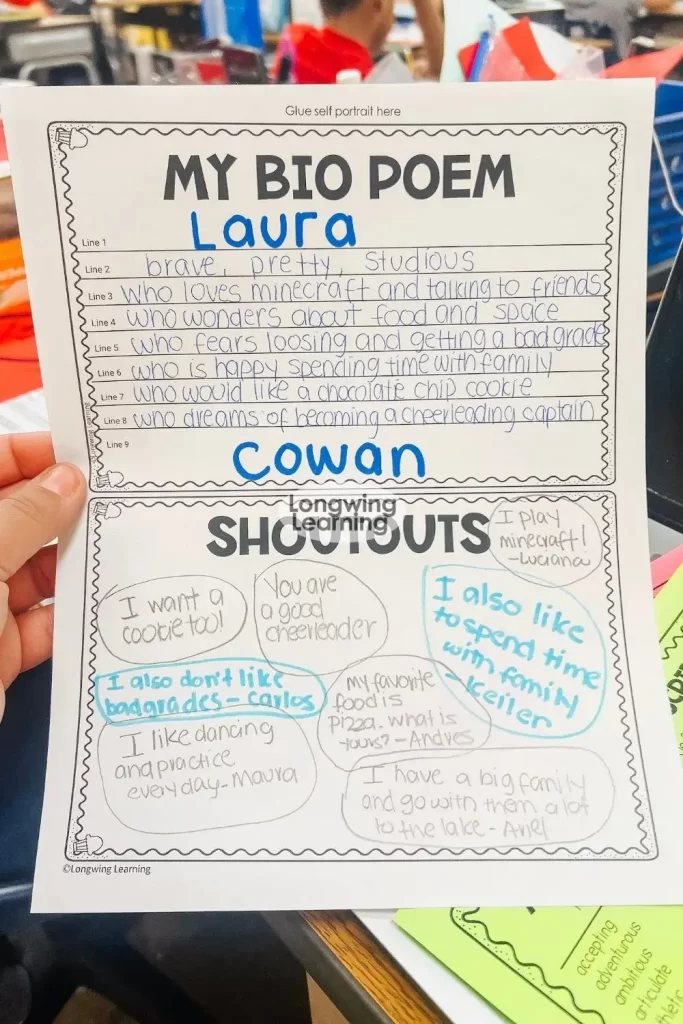 Glue self portrait here
MY BIO POEM
Line 1 Laura
Line 2 brave, pretty, studious
Line 3 who loves minecraft and talking to friends
Line 4 who wonders about food and space
Line 5 who fears loosing and getting a bad grade
Line 6 who is happy spending time with family
Line 7 who would like a chocolate chip cookie
Line 8 who dreams of becoming a cheerleading captain
Line 9
Cowan
Longwing
Learning
SHOUTOUTS
I play
minecraft!
-Luciana
I want a
cookie too!
You are
a good
cheerleader
I also like
to spend time
with family
-Keiler
I also don't like
bad grades - Carlos
my favorite
food is
pizza. what is
yours? - Andres
I like dancing
and practice
every day - Maura
I have a big family
and go with them a lot
to the lake - Ariel
©Longwing Learning
accepting
adventurous
ambitious
articulate